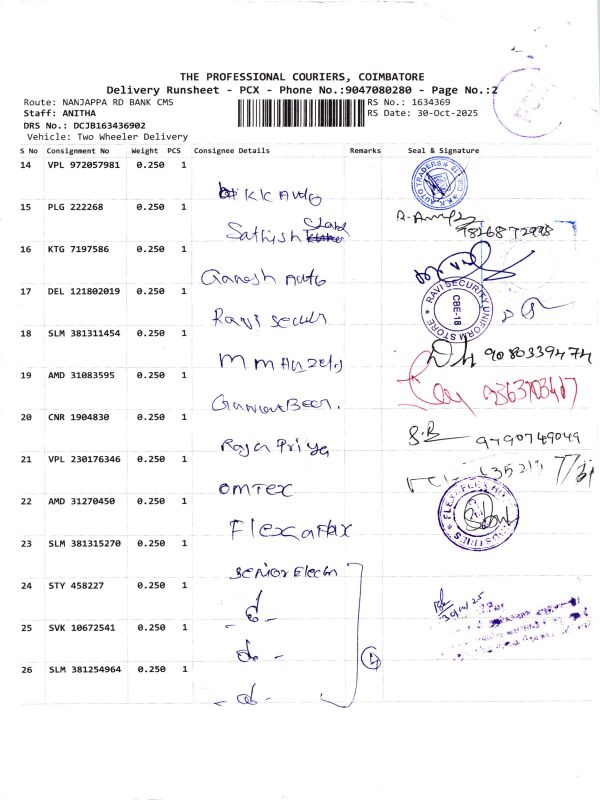 THE PROFESSIONAL COURIERS, COIMBATORE
Delivery Runsheet - PCX - Phone No.:9047080280 - Page No.:2
Route: NANJAPPA RD BANK CMS
RS No.: 1634369
Staff: ANITHA
RS Date: 30-Oct-2025
DRS No.: DCJB163436902
Vehicle: Two Wheeler Delivery
S No Consignment No Weight PCS Consignee Details Remarks Seal & Signature
14 VPL 972057981 0.250 1
KK Auto
K.K. AUTO TRADERS
15 PLG 222268 0.250 1
Sathish
16 KTG 7197586 0.250 1
Ganesh Auto
17 DEL 121802019 0.250 1
Ravi Secur
RAVI SECURITY UNIFORM STORE
CBE-18
18 SLM 381311454 0.250 1
9080339474
19 AMD 31083595 0.250 1
20 CNR 1904830 0.250 1
Raja Priya
9790749049
21 VPL 230176346 0.250 1
OMTEX
22 AMD 31270450 0.250 1
Flex a Flex
23 SLM 381315270 0.250 1
Senior Electn
24 STY 458227 0.250 1
- do -
30/10/25
25 SVK 10672541 0.250 1
- do -
4
26 SLM 381254964 0.250 1
- do -